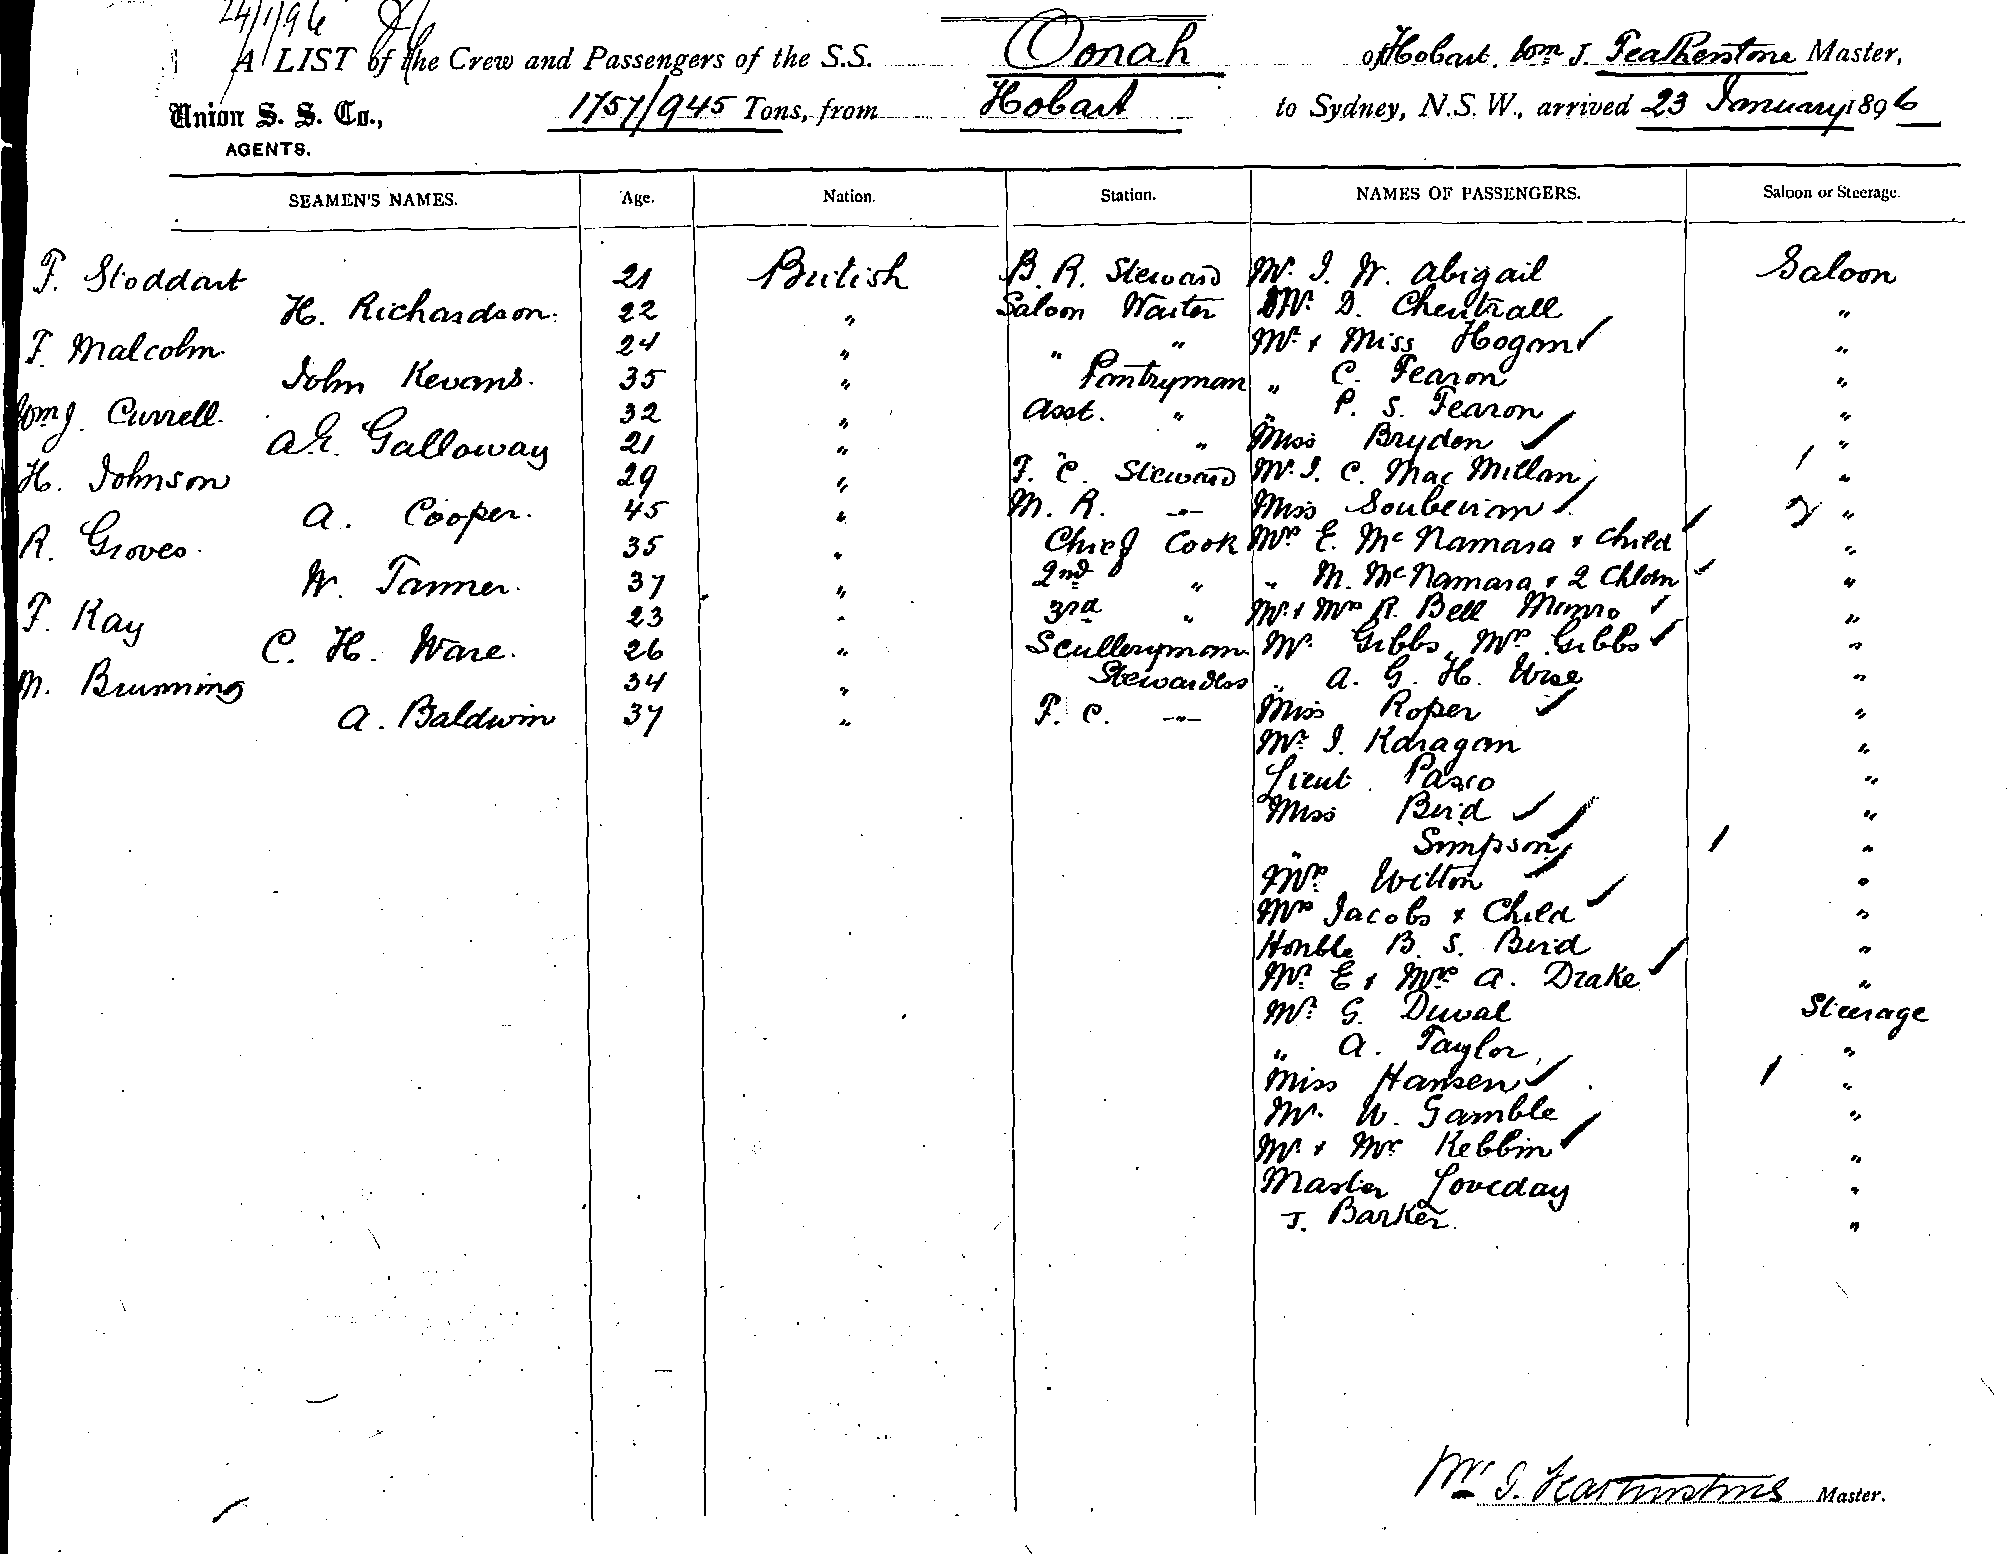 24/1/96
A LIST of the Crew and Passengers of the S.S. Oonah of Hobart, Wm J. Featherstone Master,
Union S. S. Co., 1757/945 Tons, from Hobart to Sydney, N.S.W., arrived 23 January 1896
AGENTS.
SEAMEN'S NAMES. Age. Nation. Station. NAMES OF PASSENGERS. Saloon or Steerage.
F. Stoddart 21 British B. R. Steward Mr. J. W. Abigail Saloon
H. Richardson. 22 " Saloon Waiter Mr. D. Chentrall "
F. Malcolm 24 " " " Mr & Miss Hogan "
John Kevans. 35 " Pantryman " C. Fearon "
Wm J. Currell. 32 " Asst. " " P. S. Fearon "
A. E. Galloway 21 " " Miss Brydon "
H. Johnson 29 " F. C. Steward Mr. J. C. Mac Millan 1 "
A. Cooper. 45 " M. R. -"- Miss Souberian 2 "
R. Groves. 35 " Chief Cook Mrs E. McNamara & Child "
W. Tanner. 37 " 2nd " " M. McNamara & 2 Chldn "
F. Kay 23 " 3rd " Mr & Mrs R. Bell Munro "
C. H. Ware. 26 " Sculleryman Mr. Gibbs, Mrs Gibbs "
M. Brunning 34 " Stewardess " A. G. H. "
A. Baldwin 37 " F. C. -"- Miss Roper "
Mr. J. Karagan "
Lieut. Pasco "
Miss Bird "
" Simpson 1 "
Mrs Witton "
Mrs Jacobs & Child "
Honble B. S. Bird "
Mr. E & Mrs A. Drake "
Mr. G. Duval Steerage
" A. Taylor "
Miss Hansen 1 "
Mr. W. Gamble "
Mr & Mrs Kebbin "
Master Loveday "
J. Barker. "
Wm J. Featherstone Master.